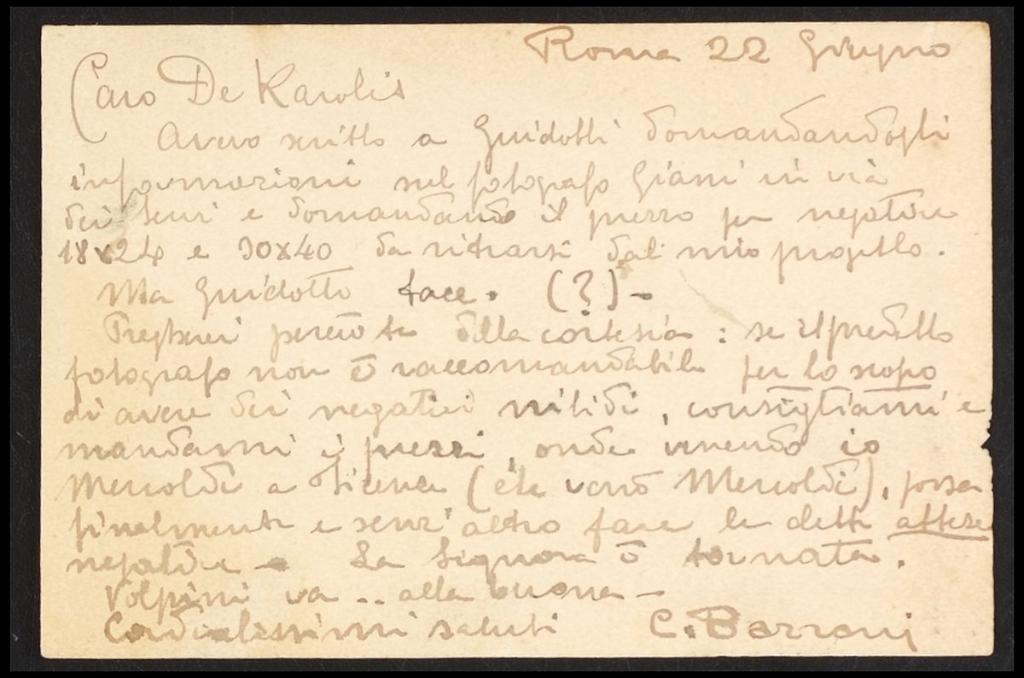 Roma 22 Giugno
Caro De Karolis
Avevo scritto a Guidotti domandandogli
informazioni sul fotografo Giani in via
dei Servi e domandando il prezzo per negative
18x24 e 30x40 da ritrarsi dal mio progetto.
Ma Guidotti tace. (?) -
Pregherei perciò te della cortesia: se il predetto
fotografo non è raccomandabile per lo scopo
di avere dei negativi nitidi, consigliami e
mandami i prezzi, onde venendo io
Mercoldì a Firenze (ché verrò Mercoldì), possa
finalmente e senz'altro fare le dette attese
negative - La Signora è tornata.
Volpini va .. alla buona -
Cordialissimi saluti C.